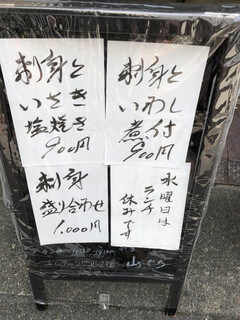 刺身と
いわし
煮付
900円
刺身と
いさき
塩焼き
900円
水曜日は
ランチ
休みです
刺身
盛り合わせ
1,000円